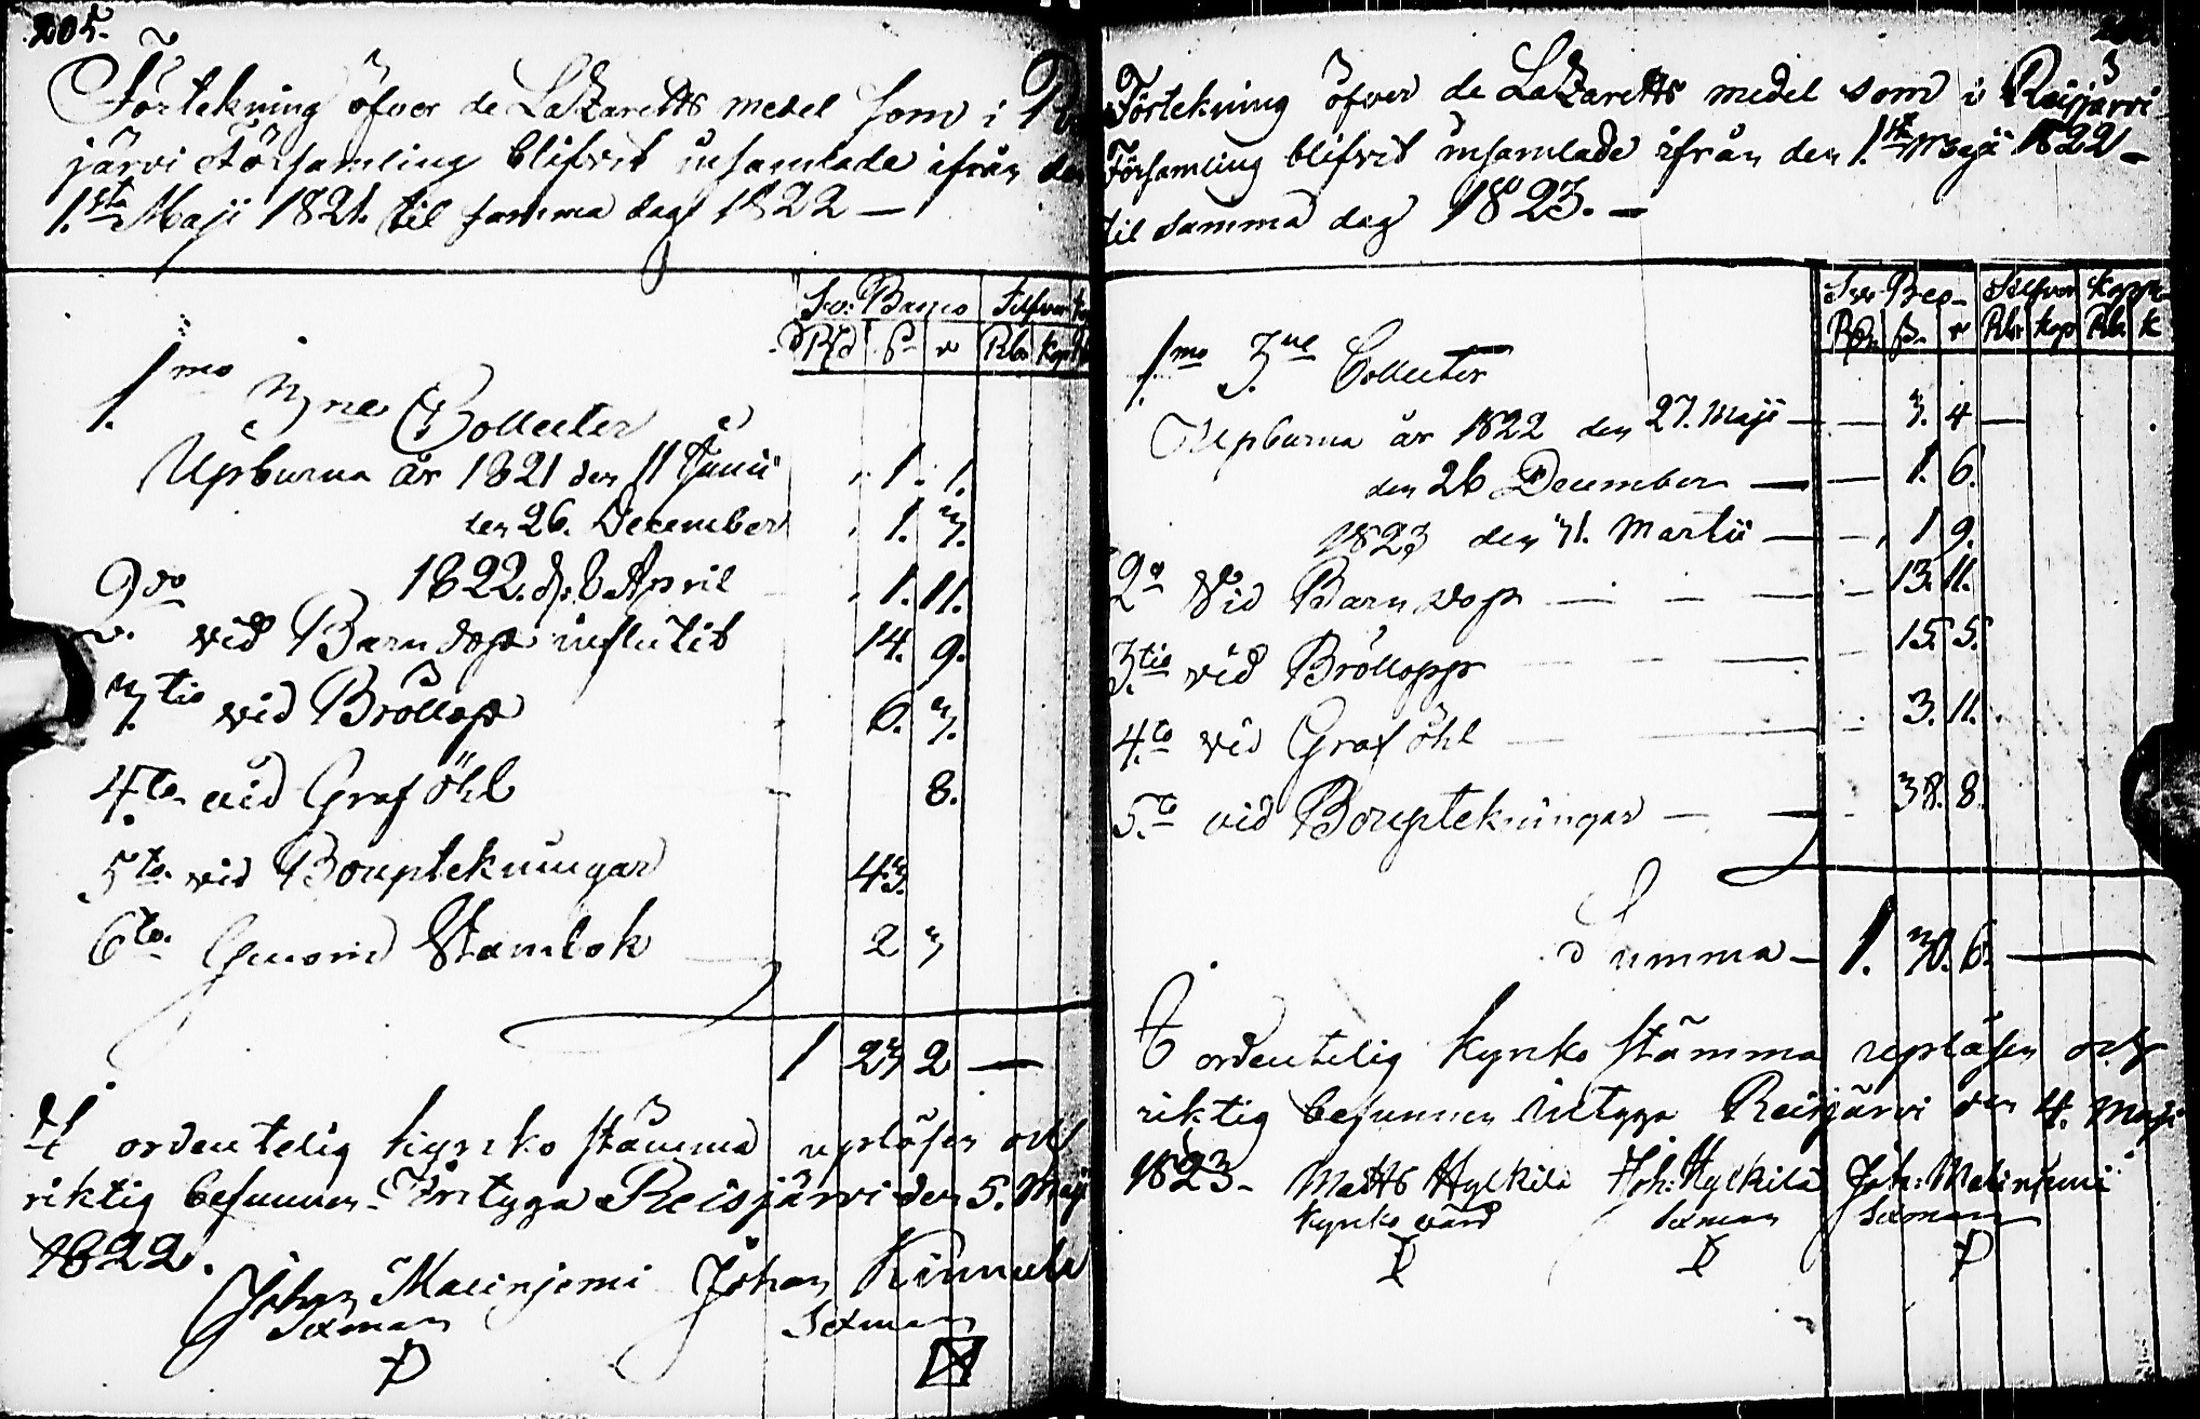 205.
Förtekning öfver de Lazaretts medel som i
järvi Församling blifvit insamlade ifrån den
1.sta Maji 1821. til samma dag 1822 —
Sv: Banco Silfver
Rd ß r Rbr Kop
1.mo 3ne Collecter
Upburna år 1821 den 11 Junii 1. 1.
den 26. December 1. 3.
1822. d. 8 April 1. 11.
2do vid Barndop influtit 14. 9.
3.tio vid Bröllop 6. 3.
4.to vid Graföhl 8.
5to. vid Bouptekningar 43.
6to. Genom Stambok 2 3
1 23 2 —
I ordentelig kyrko stämma upläsen och
riktig befunnen Intyga Reisjärvi den 5. Maji
1822.
Johan Johan Kinnula
Sexman Sexman
Förtekning öfver de Lazaretts medel som i Reisjärvi
Församling blifvit insamlade ifrån den 1.sta Maji 1822 —
til samma dag 1823. —
Sv. Bco Silfver Kopp
Rd. ß. r Rbr Kop Rb. K
1.mo 3.ne Collecter
Upburna år 1822 den 27. Maji — — 3. 4 —
den 26 December — — 1. 6.
1823 den 31. Martii — — 1 9.
2o Vid Barndop — — — 13. 11.
3.tio vid Bröllopp — — — 15. 5.
4.to vid Graföhl — — 3. 11.
5.to vid Bouptekningar — — 38. 8.
Summa — 1. 30. 6. —
I ordentelig Kyrko stämma upläsen och
riktig befunnen intyga Reisjärvi den 4. Maji
1823 – Matts Hylkilä Joh: Hylkilä Joh:
Kyrko värd Sexman Sexman